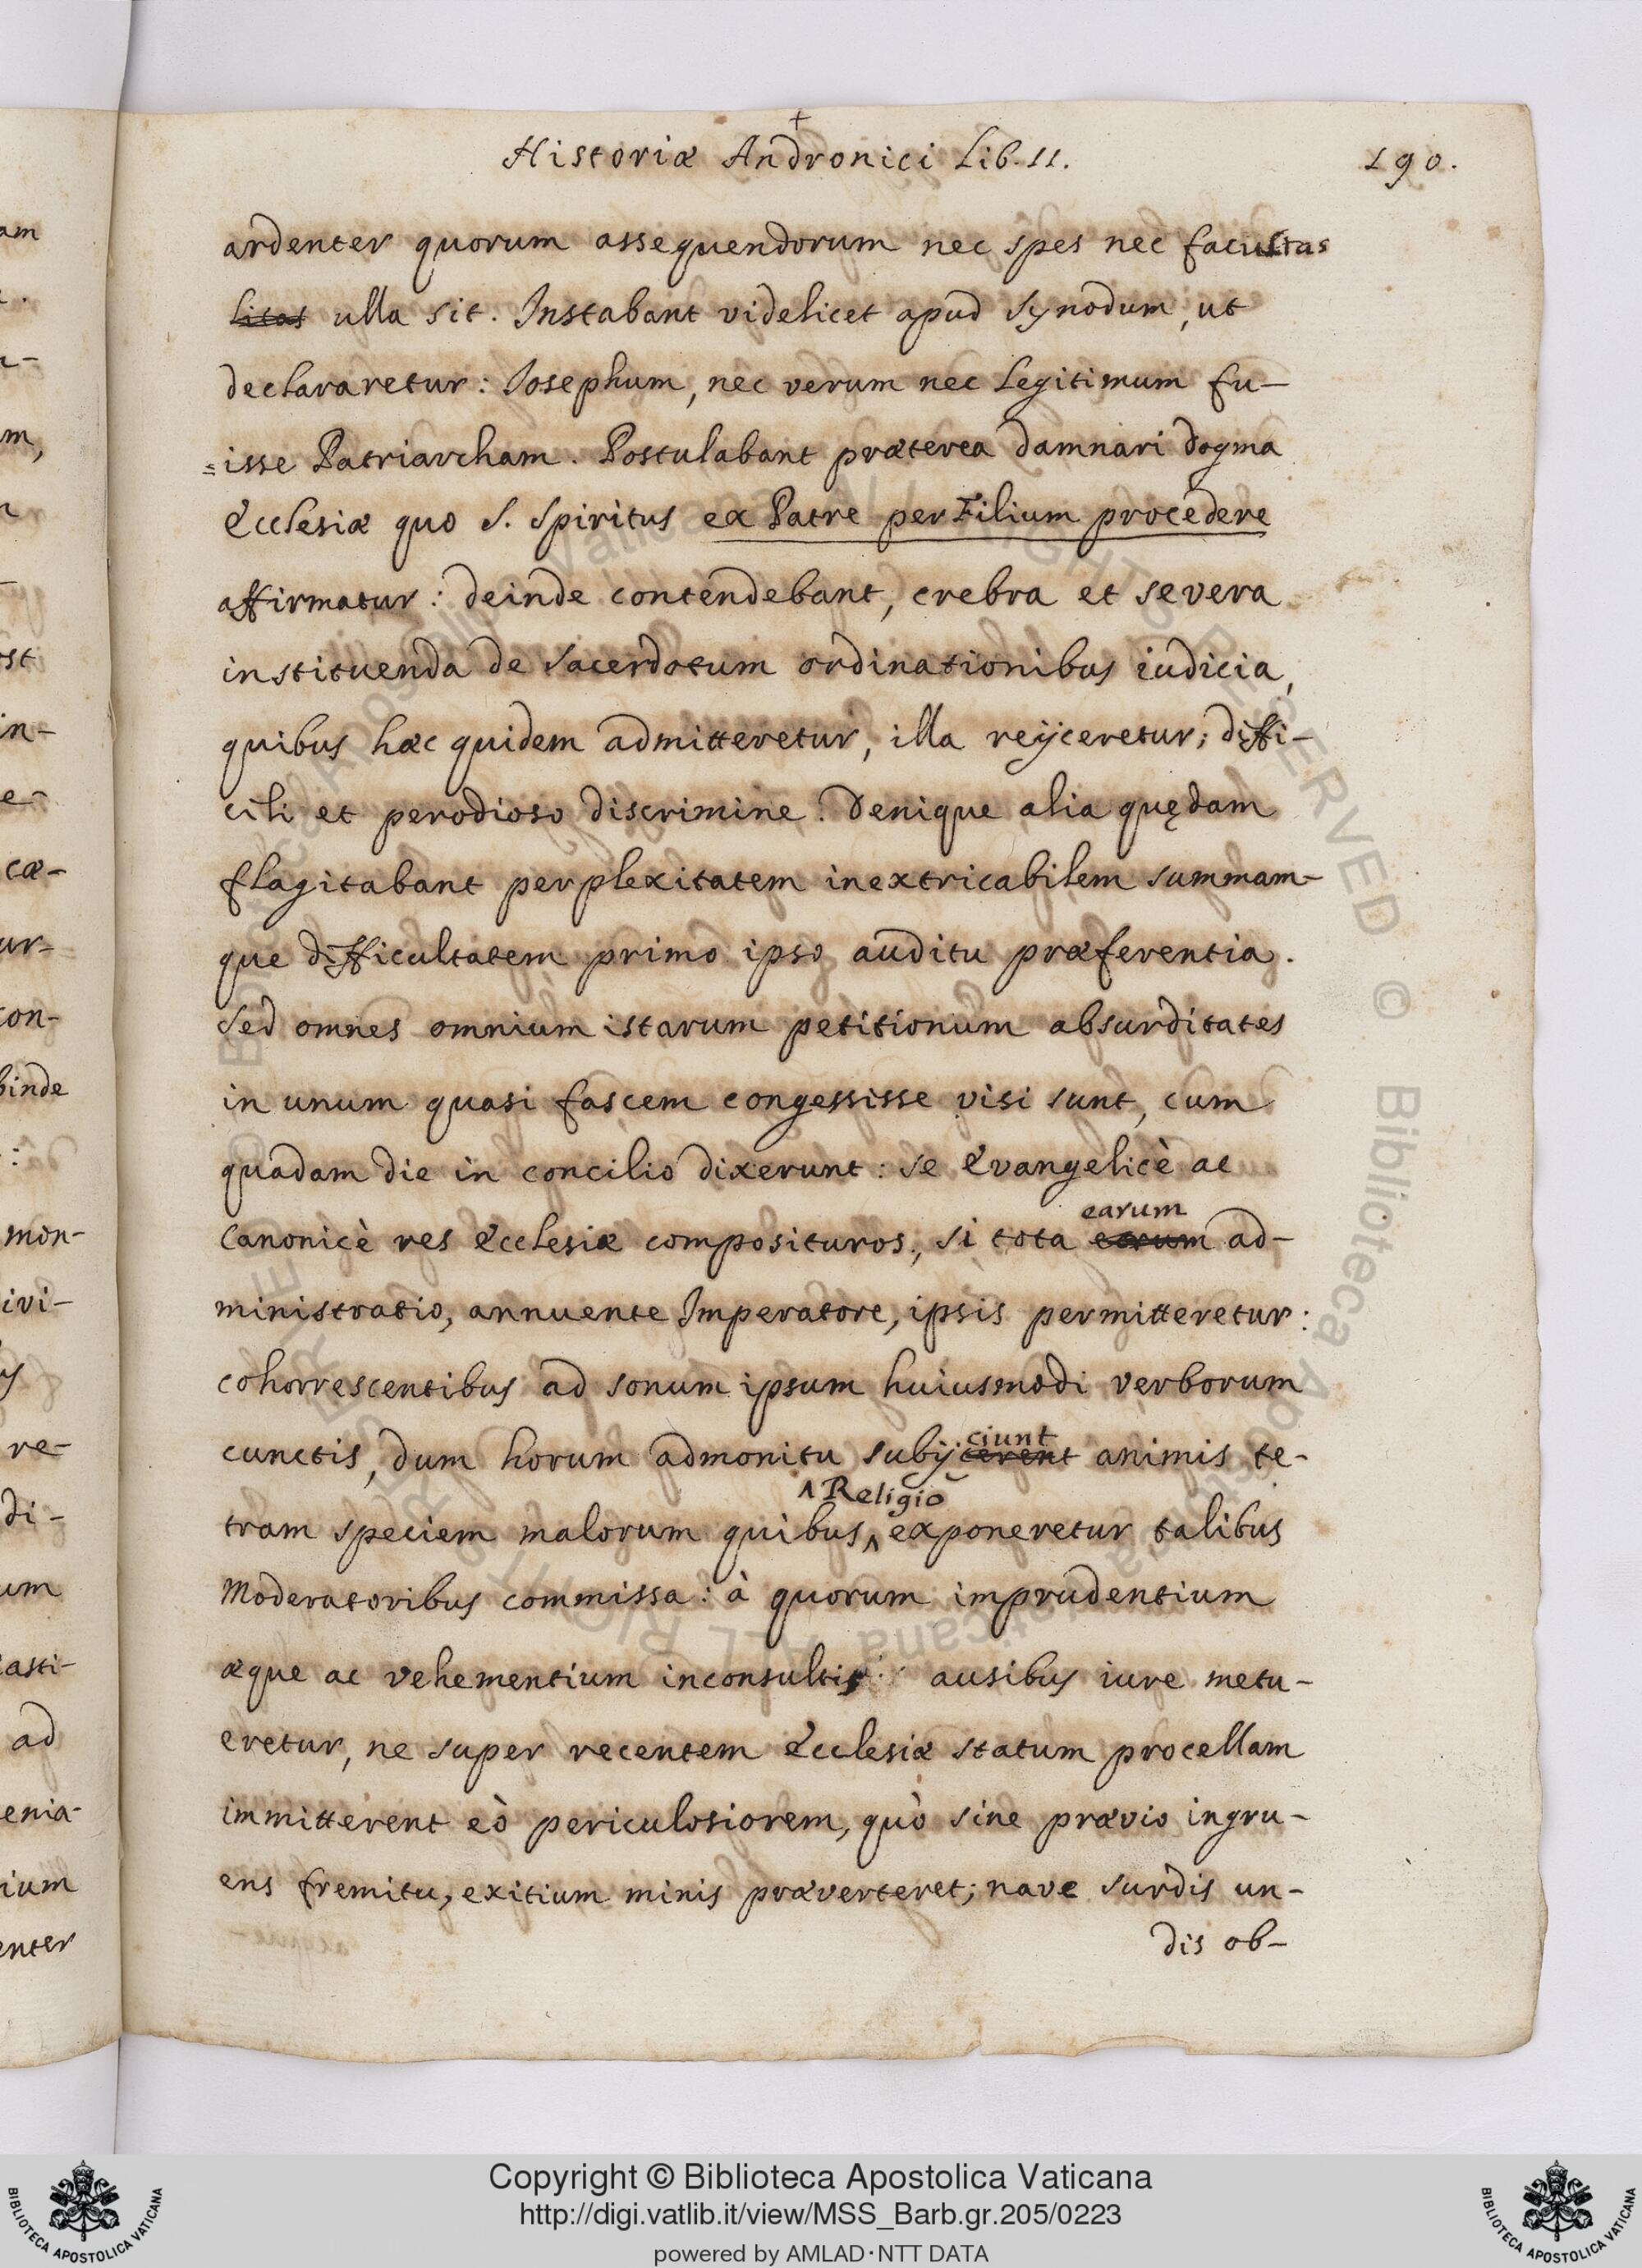 Historiæ Andronici Lib. II.
190.
ardenter quorum assequendorum nec spes nec facultas
litas ulla sit. Instabant videlicet apud Synodum, ut
declararetur: Iosephum, nec verum nec legitimum fu-
isse Patriarcham. Postulabant præterea damnari dogma
Ecclesiæ quo S. Spiritus ex Patre per Filium procedere
affirmatur: deinde contendebant, crebra et severa
instituenda de sacerdotum ordinationibus iudicia,
quibus hæc quidem admitteretur, illa reijceretur; diffi-
cili et perodioso discrimine. Denique alia quędam
flagitabant perplexitatem inextricabilem summam-
que difficultatem primo ipso auditu præferentia.
Sed omnes omnium istarum petitionum absurditates
in unum quasi fascem congessisse visi sunt, cum
quadam die in concilio dixerunt: se Evangelicè ac
earum
Canonicè res Ecclesiæ composituros, si tota eorum ad-
ministratio, annuente Imperatore, ipsis permitteretur:
cohorrescentibus ad sonum ipsum huiusmodi verborum
ciunt
cunctis, dum horum admonitu subijcerent animis te-
Religio
tram speciem malorum quibus exponeretur talibus
Moderatoribus commissa: à quorum imprudentium
æque ac vehementium inconsultis ausibus iure metu-
eretur, ne super recentem Ecclesiæ statum procellam
immitterent eò periculosiorem, quò sine prævio ingru-
ens fremitu, exitium minis præverteret; nave surdis un-
dis ob-
am
m,
st
in-
e-
cæ-
ur-
con-
binde
mon-
ivi-
re-
di-
um
iasti-
ad
enia-
ium
enter
Copyright © Biblioteca Apostolica Vaticana
http://digi.vatlib.it/view/MSS_Barb.gr.205/0223
powered by AMLAD·NTT DATA
BIBLIOTECA APOSTOLICA VATICANA
BIBLIOTECA APOSTOLICA VATICANA